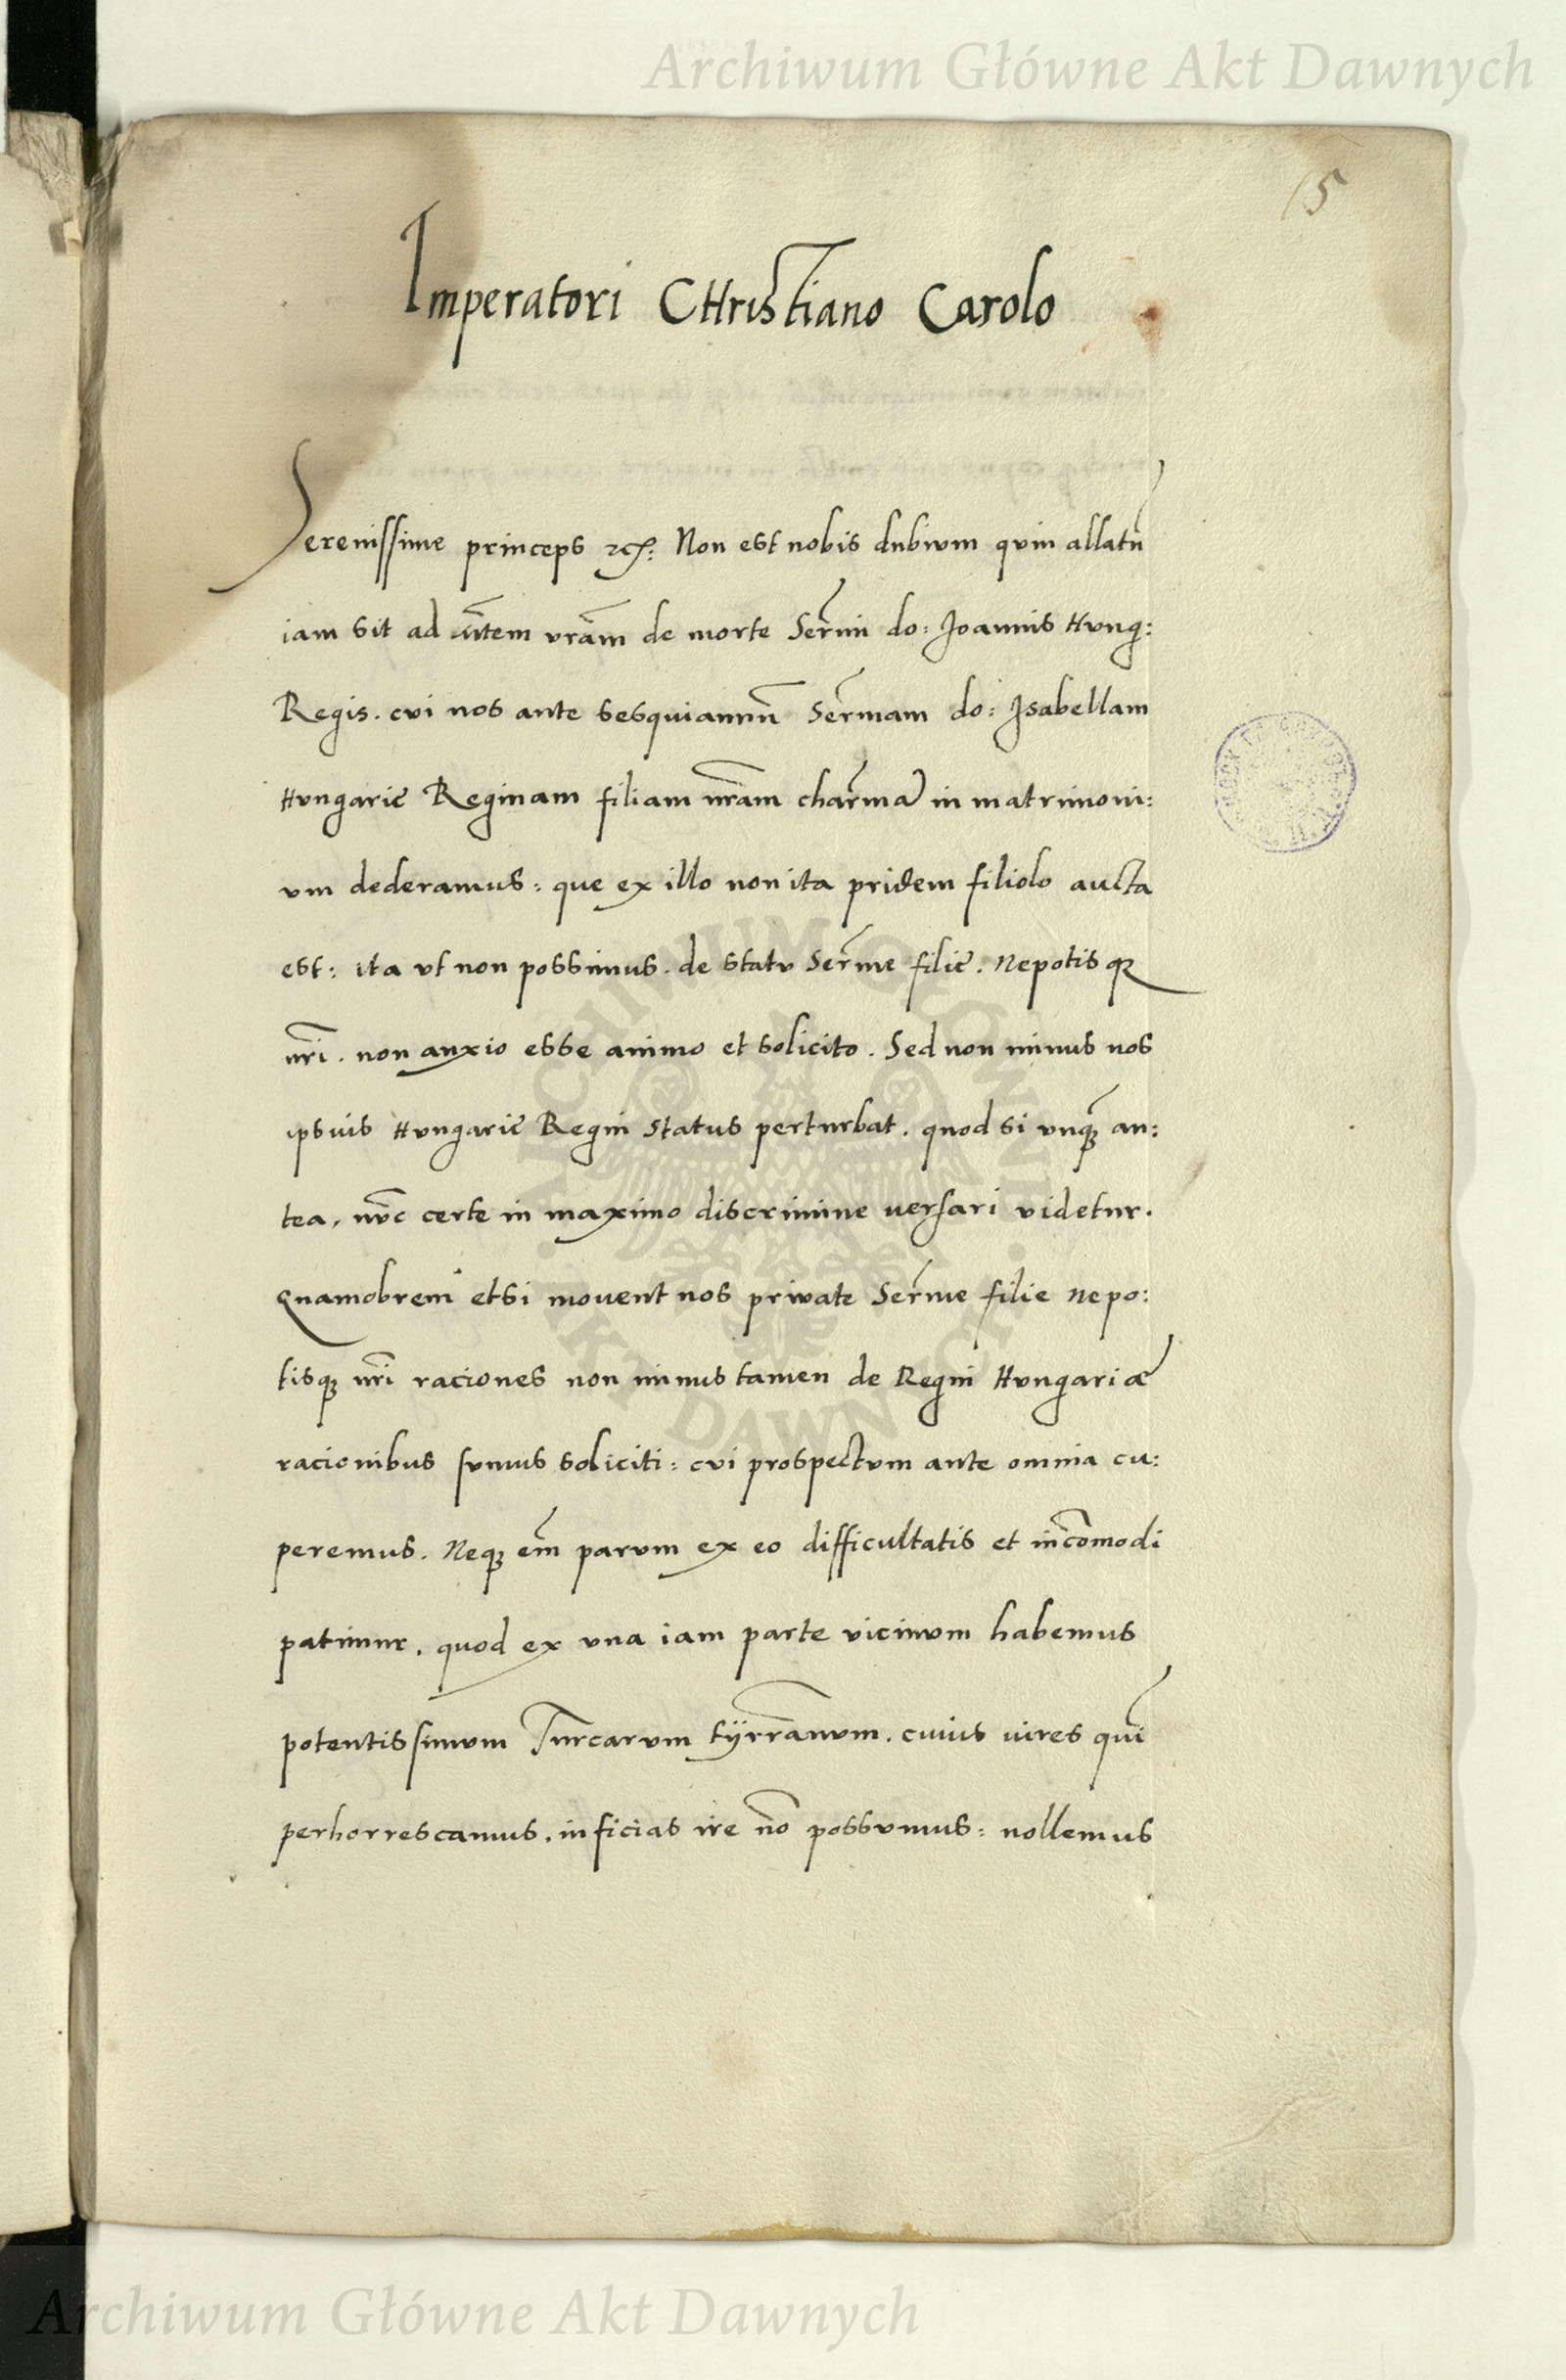 Archiwum Główne Akt Dawnych
15
Imperatori CHristiano Carolo
Serenissime princeps etc. Non est nobis dubium quin allatū
iam sit ad vram de morte Sermi do: Joannis Hung:
Regis. cui nos ante sesquiannū Sermam do: Isabellam
Hungarię Reginam filiam nram charmā in matrimoni:
um dederamus: que ex illo non ita pridem filiolo aucta
est: ita ut non possimus. de statu Serme filię. Nepotisq;
nri. non anxio esse animo et solicito. Sed non minus nos
ipsius Hungarię Regni status perturbat. quod si unq; an:
tea, nūc certe in maximo discrimine versari videtur.
Quamobrem etsi movent nos private Serme filie Nepo:
tisq; nri raciones non minus tamen de Regni Hungariæ
racionibus sumus soliciti: cui prospectum ante omnia cu:
peremus. Neq; em parum ex eo difficultatis et incōmodi
patimur. quod ex una iam parte vicinum habemus
potentissimum Turcarum tÿrranum. cuius vires quī
perhorrescamus. inficias ire nō possumus: nollemus
ARCHIWUM GŁÓWNE AKT DAWNYCH
Archiwum Główne Akt Dawnych